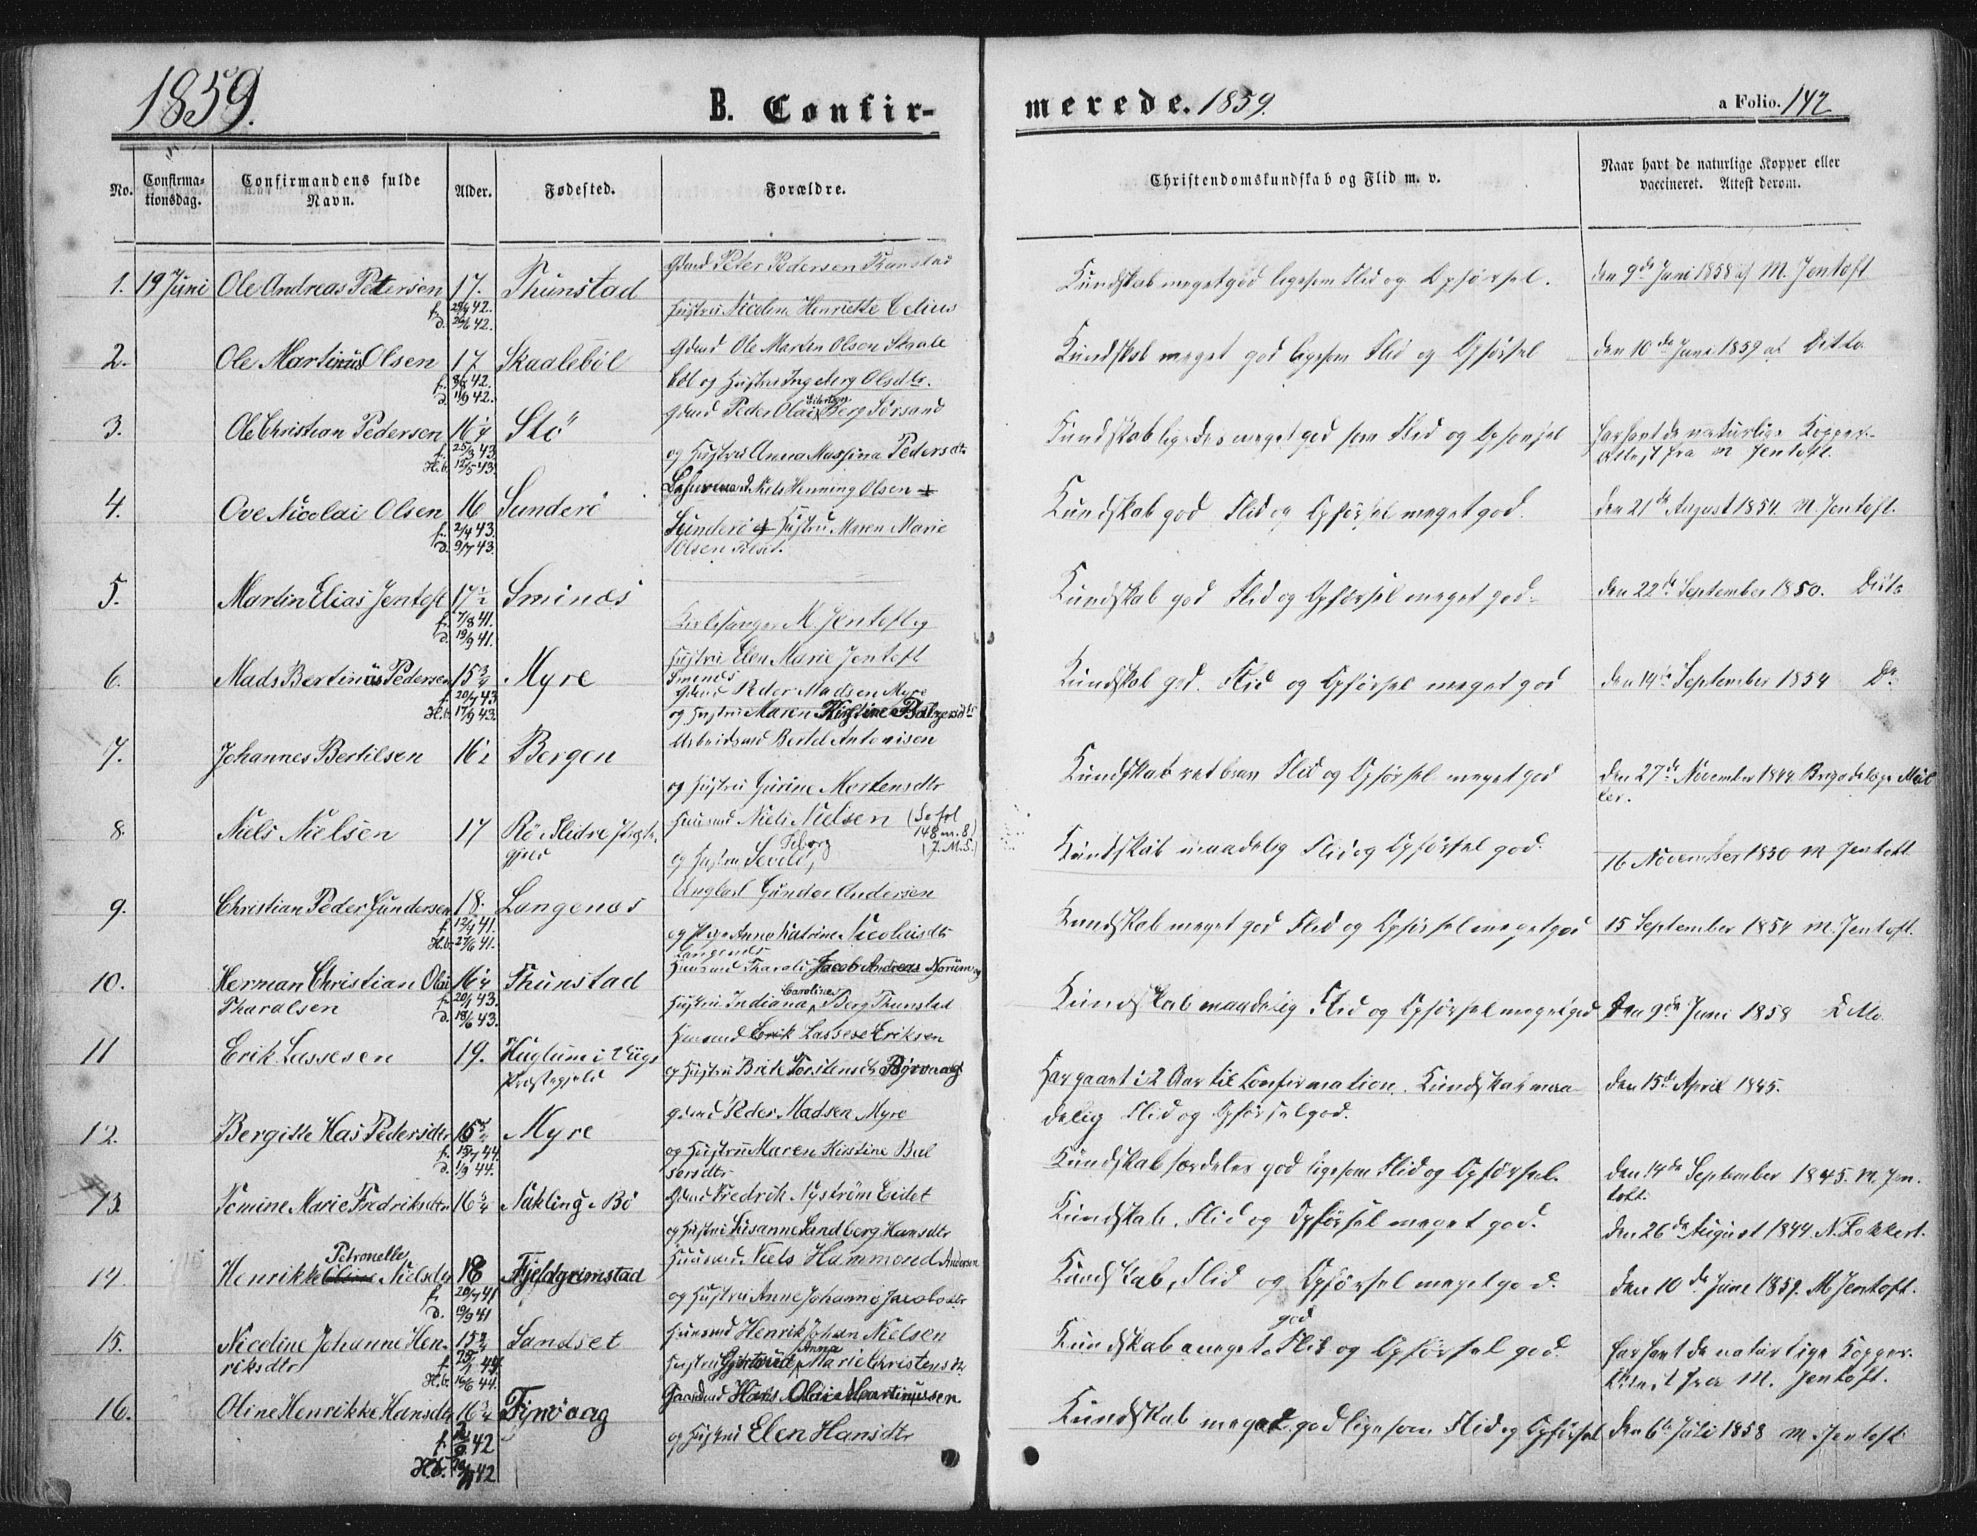 1859.
B. Confir-
merede. 1859.
a Folio. 142
No.
Confirma-
tionsdag.
Confirmandens fulde
Navn.
Alder.
Fødested.
Forældre.
Christendomskundskab og Flid m. v.
Naar havt de naturlige Kopper eller
vaccineret. Attest derom.
1. 19 Juni Ole Andreas Petersen 17. Thunstad
Gdmd Peter Pedersen Thunstad
Hustru Nicoline Henriette Celius
Kundskab meget god ligesom Flid og Opførsel.
den 9de Juni 1858 af M. Jentoft
2. Ole Martinus Olsen 17 Skaalebøl
Gdmd Ole Martin Olsen Skaale
bøl og Hustru Ingeborg Olsdtr.
Kundskab meget god ligesom Flid og Opførsel
den 10de Juni 1859 af Ditto
3. Ole Christian Pedersen 16¼ Stö
Gdmd Peder Olai Eilertsen Berg Sørsand
og Hustru Anna Massina Pedersdtr
Kundskab ligeledes meget god som Flid og Opførsel
har havt de naturlige Kopper.
Attest fra M Jentoft.
4. Ove Nicolai Olsen 16 Sunderö
Niels Henning Olsen
Sunderö og Hustru Maren Marie
Olsen
Kundskab god Flid og Opførsel meget god.
den 21de August 1854. M. Jentoft.
5. Martin Elias Jentoft 17½ Sminæs
Kirkesanger M. Jentoft og
Hustru Elen Marie Jentoft
Smenes
Kundskab god Flid og Opførsel meget god.
den 22de September 1850. Ditto
6. Mads Bertinus Pedersen 15¾ Myre
Gdmd Peder Madsen Myre
og Hustru Maren Kirstine Baltzersdtr
Kundskab god. Flid og Opførsel meget god
den 14de September 1854 Do
7. Johannes Bertilsen 16½ Bergen
Arbeidsmd Bertel Antonisen
og Hustru Gurine Mortensdtr
Kundskab ret brav Flid og Opførsel meget god
den 27de November 1844 Brigadelæge Møl
ler.
8. Niels Nielsen 17 Rö i Slidre Præste
gjeld
Huusmd Niels Nielsen (Se fol
148 n. 8)
og Hustru Seveld
Kundskab maadelig Flid og Opførsel god.
16 November 1850 M Jentoft
9. Christian Peder Gundersen 18. Langenæs
Ungkarl Gunder Andersen
og Pige Anne Katrine Nicolaisdtr
Langenæs
Kundskab meget god Flid og Opførsel meget god
15 September 1854 M. Jentoft.
10. Herman Christian Olai 16½ Thunstad
Tharalsen
Huusmd Tharald Jacob Andreas Norum og
Hustru Indiana Caroline Berg Thunstad
Kundskab maadelig Flid og Opførsel meget god
Den 9de Juni 1858 Ditto.
11 Erik Lassesen 19. Huglum i Viigs
Præstegjeld
Huusmd Erik Lassese Eriksen
og Hustru Brit Torstensdtr
Har gaaet i 2 Aar til Confirmation. Kundskab maa-
delig Flid og Opførsel god.
den 15de April 1845.
12. Bergitte Has Pedersdtr 15¾ Myre
Gdmd Peder Madsen Myre
og Hustru Maren Kirstine Bal
sersdtr
Kundskab særdeles god ligesom Flid og Opførsel.
den 14de September 1845. M. Jen-
toft.
13. Tomine Marie Fredriksdtr 16¾ Nøkling i Bø
Gdmd Fredrik Nystrøm Eidet
og Hustru Susanne Lundberg Hansdtr
Kundskab, Flid og Opførsel meget god.
den 26de August 1844 N. Fokkert.
14. Henrikke Petronelle Nielsdtr 18 Fjeldgrimstad
Huusmd Niels Hammond Andersen
og Hustru Anne Johanna Jacobsdtr
Kundskab, Flid og Opførsel meget god.
den 10de Juni 1859. M Jentoft.
15. Nicoline Johanne Hen- 15¾ Sandset
riksdtr
Huusmd Henrik Johan Nielsen
Hustru Gjertrud Anna Marie Christensdtr
Kundskab meget god Flid og Opførsel god.
har havt de naturlige Kopper.
Attest fra M. Jentoft.
16. Oline Henrikke Hansdtr 16¾ Tinvaag
Gaardmd Hans Olai Martinussen
og Hustru Elen Hansdtr
Kundskab meget god ligesom Flid og Opførsel
den 6te Juli 1858 M. Jentoft